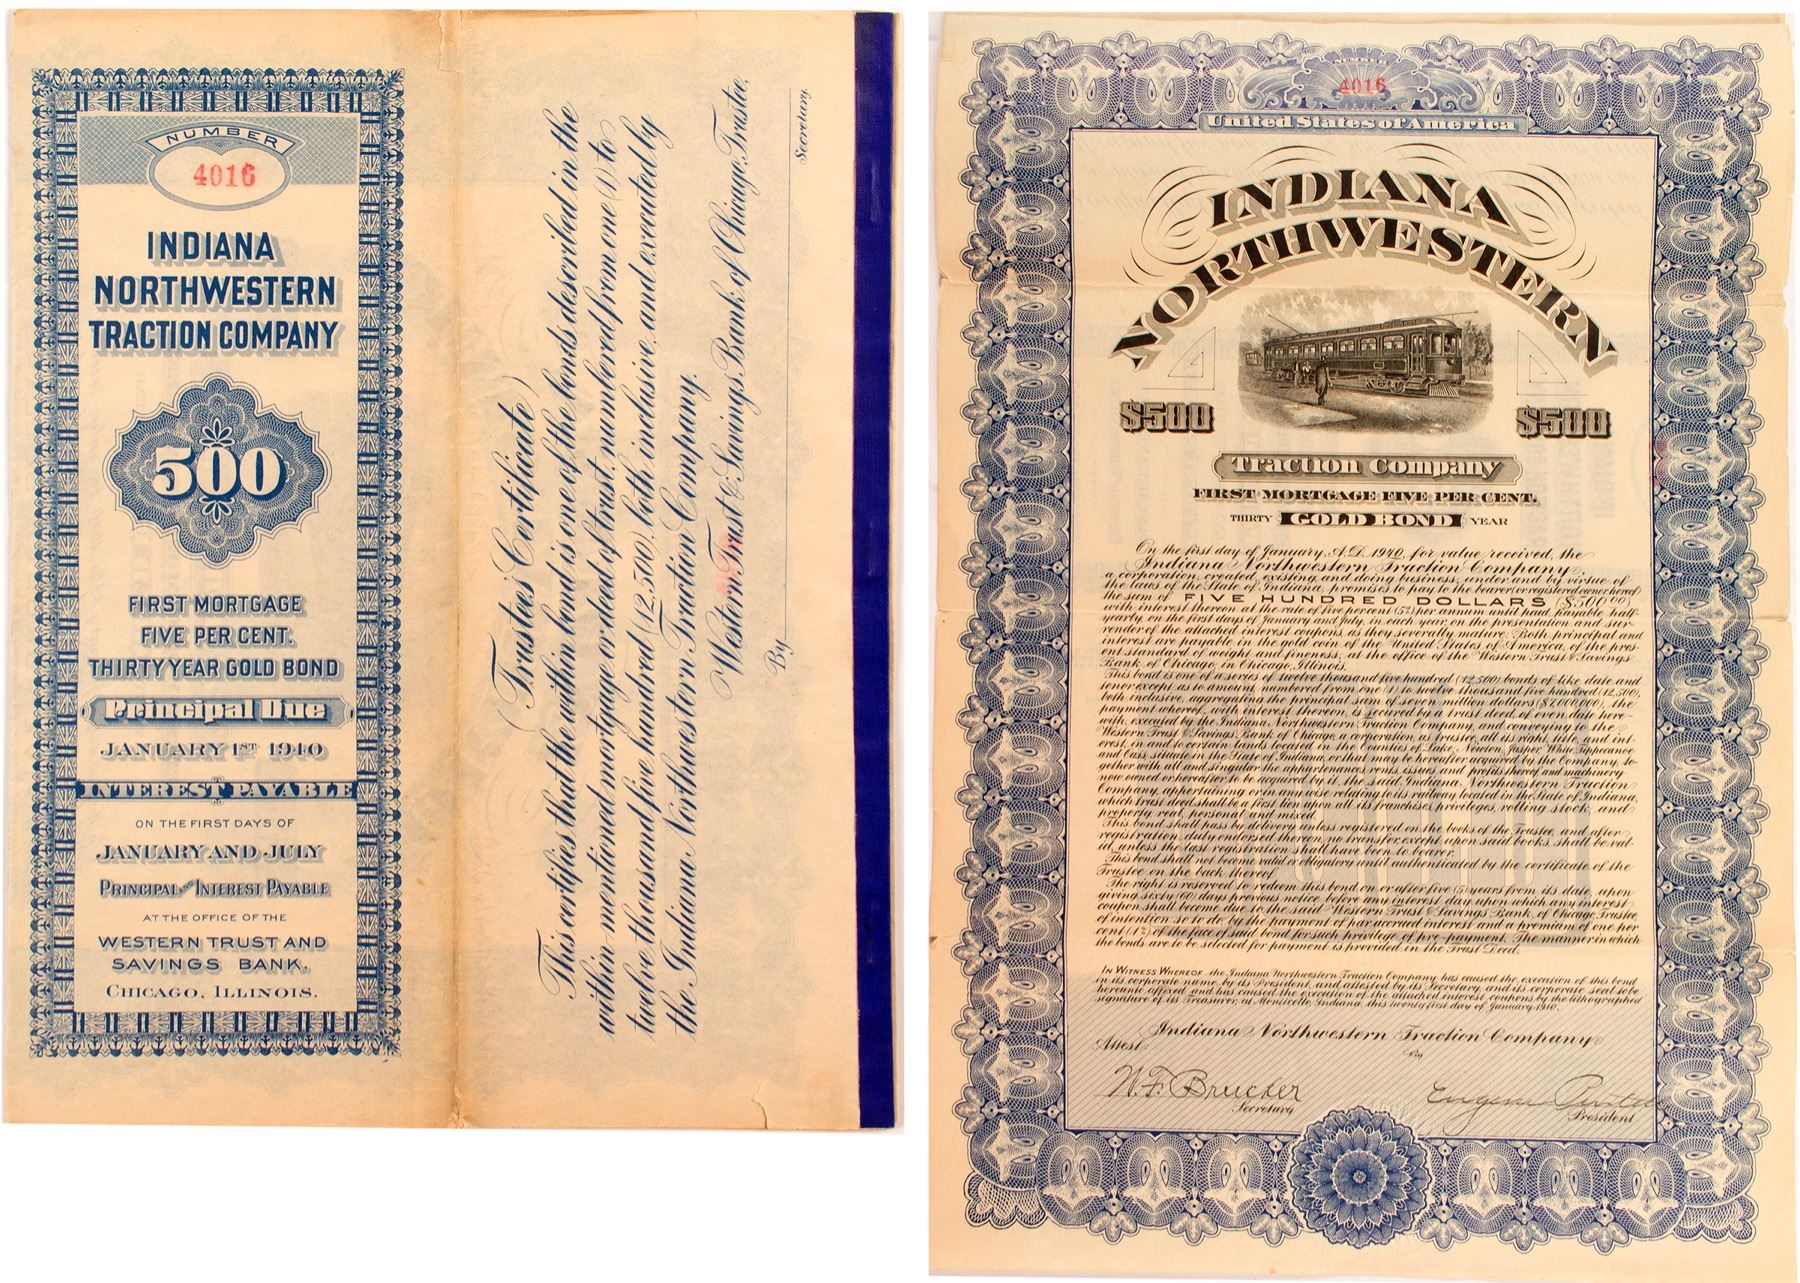 NUMBER
4016
INDIANA
NORTHWESTERN
TRACTION COMPANY
500
FIRST MORTGAGE
FIVE PER CENT.
THIRTY YEAR GOLD BOND
Principal Due
JANUARY 1ST 1940
INTEREST PAYABLE
ON THE FIRST DAYS OF
JANUARY AND JULY
PRINCIPAL AND INTEREST PAYABLE
AT THE OFFICE OF THE
WESTERN TRUST AND
SAVINGS BANK.
CHICAGO, ILLINOIS.
(Trustees Certificate)
This certifies that the within bond is one of the bonds described in the
within mentioned mortgage or deed of trust, numbered from one (1) to
twelve thousand five hundred (12,500), both inclusive, and executed by
the Indiana Northwestern Traction Company.
Western Trust & Savings Bank of Chicago, Trustee,
By
Secretary.
NUMBER
4016
United States of America
INDIANA
NORTHWESTERN
$500 $500
Traction Company
FIRST MORTGAGE FIVE PER CENT.
THIRTY GOLD BOND YEAR
On the first day of January, A.D. 1940, for value received, the
Indiana Northwestern Traction Company,
a corporation, created, existing and doing business, under and by virtue of
the laws of the State of Indiana, promises to pay to the bearer (or registered owner hereof)
the sum of FIVE HUNDRED DOLLARS ($500.00)
with interest thereon at the rate of five per cent (5%) per annum until paid, payable half-
yearly, on the first days of January and July, in each year, on the presentation and sur-
render of the attached interest coupons, as they severally mature. Both principal and
interest are payable in the gold coin of the United States of America, of the pres-
ent standard of weight and fineness, at the office of the Western Trust & Savings
Bank of Chicago, in Chicago, Illinois.
This bond is one of a series of twelve thousand five hundred (12,500) bonds of like date and
tenor except as to amount, numbered from one (1) to twelve thousand five hundred (12,500),
both inclusive, aggregating the principal sum of seven million dollars ($7,000,000), the
payment whereof, and interest thereon, is secured by a trust deed, of even date here-
with, executed by the Indiana Northwestern Traction Company, and conveying to the
Western Trust & Savings Bank of Chicago, a corporation, as trustee, all its right, title, and int-
erest, in and to certain lands located in the Counties of Lake, Newton, Jasper, White, Tippecanoe
and Cass, situate in the State of Indiana, or that may be hereafter acquired by the Company, to-
gether with all and singular the appurtenances, rents, issues and profits thereof and machinery
now owned or hereafter to be acquired by it, the said, Indiana Northwestern Traction
Company, appertaining or in any wise relating to its railway located in the State of Indiana,
which trust deed shall be a first lien upon all its franchises, privileges, rolling stock, and
property, real, personal and mixed.
This bond shall pass by delivery, unless registered on the books of the Trustee, and after
registration, duly endorsed thereon, no transfer, except upon said books, shall be val-
id, unless the last registration shall have been to bearer.
This bond shall not become valid or obligatory until authenticated by the certificate of the
Trustee on the back thereof.
The right is reserved to redeem this bond on or after five (5) years from its date, upon
giving sixty (60) days previous notice before any interest day upon which any interest
coupon shall become due to the said Western Trust & Savings Bank, of Chicago, Trustee,
of intention so to do, by the payment of par accrued interest and a premium of one per
cent (1%) of the face of said bond for such privilege of pre-payment. The manner in which
the bonds are to be selected for payment is provided in the Trust Deed.
IN WITNESS WHEREOF the Indiana Northwestern Traction Company, has caused the execution of this bond
in its corporate name, by its President, and attested by its Secretary, and its corporate seal to be
hereunto affixed, and has caused the execution of the attached interest coupons by the lithographed
signature of its Treasurer, at Monticello, Indiana, this twenty first day of January 1910.
Indiana Northwestern Traction Company
Attest: By
W. F. Brucker Eugene
Secretary President